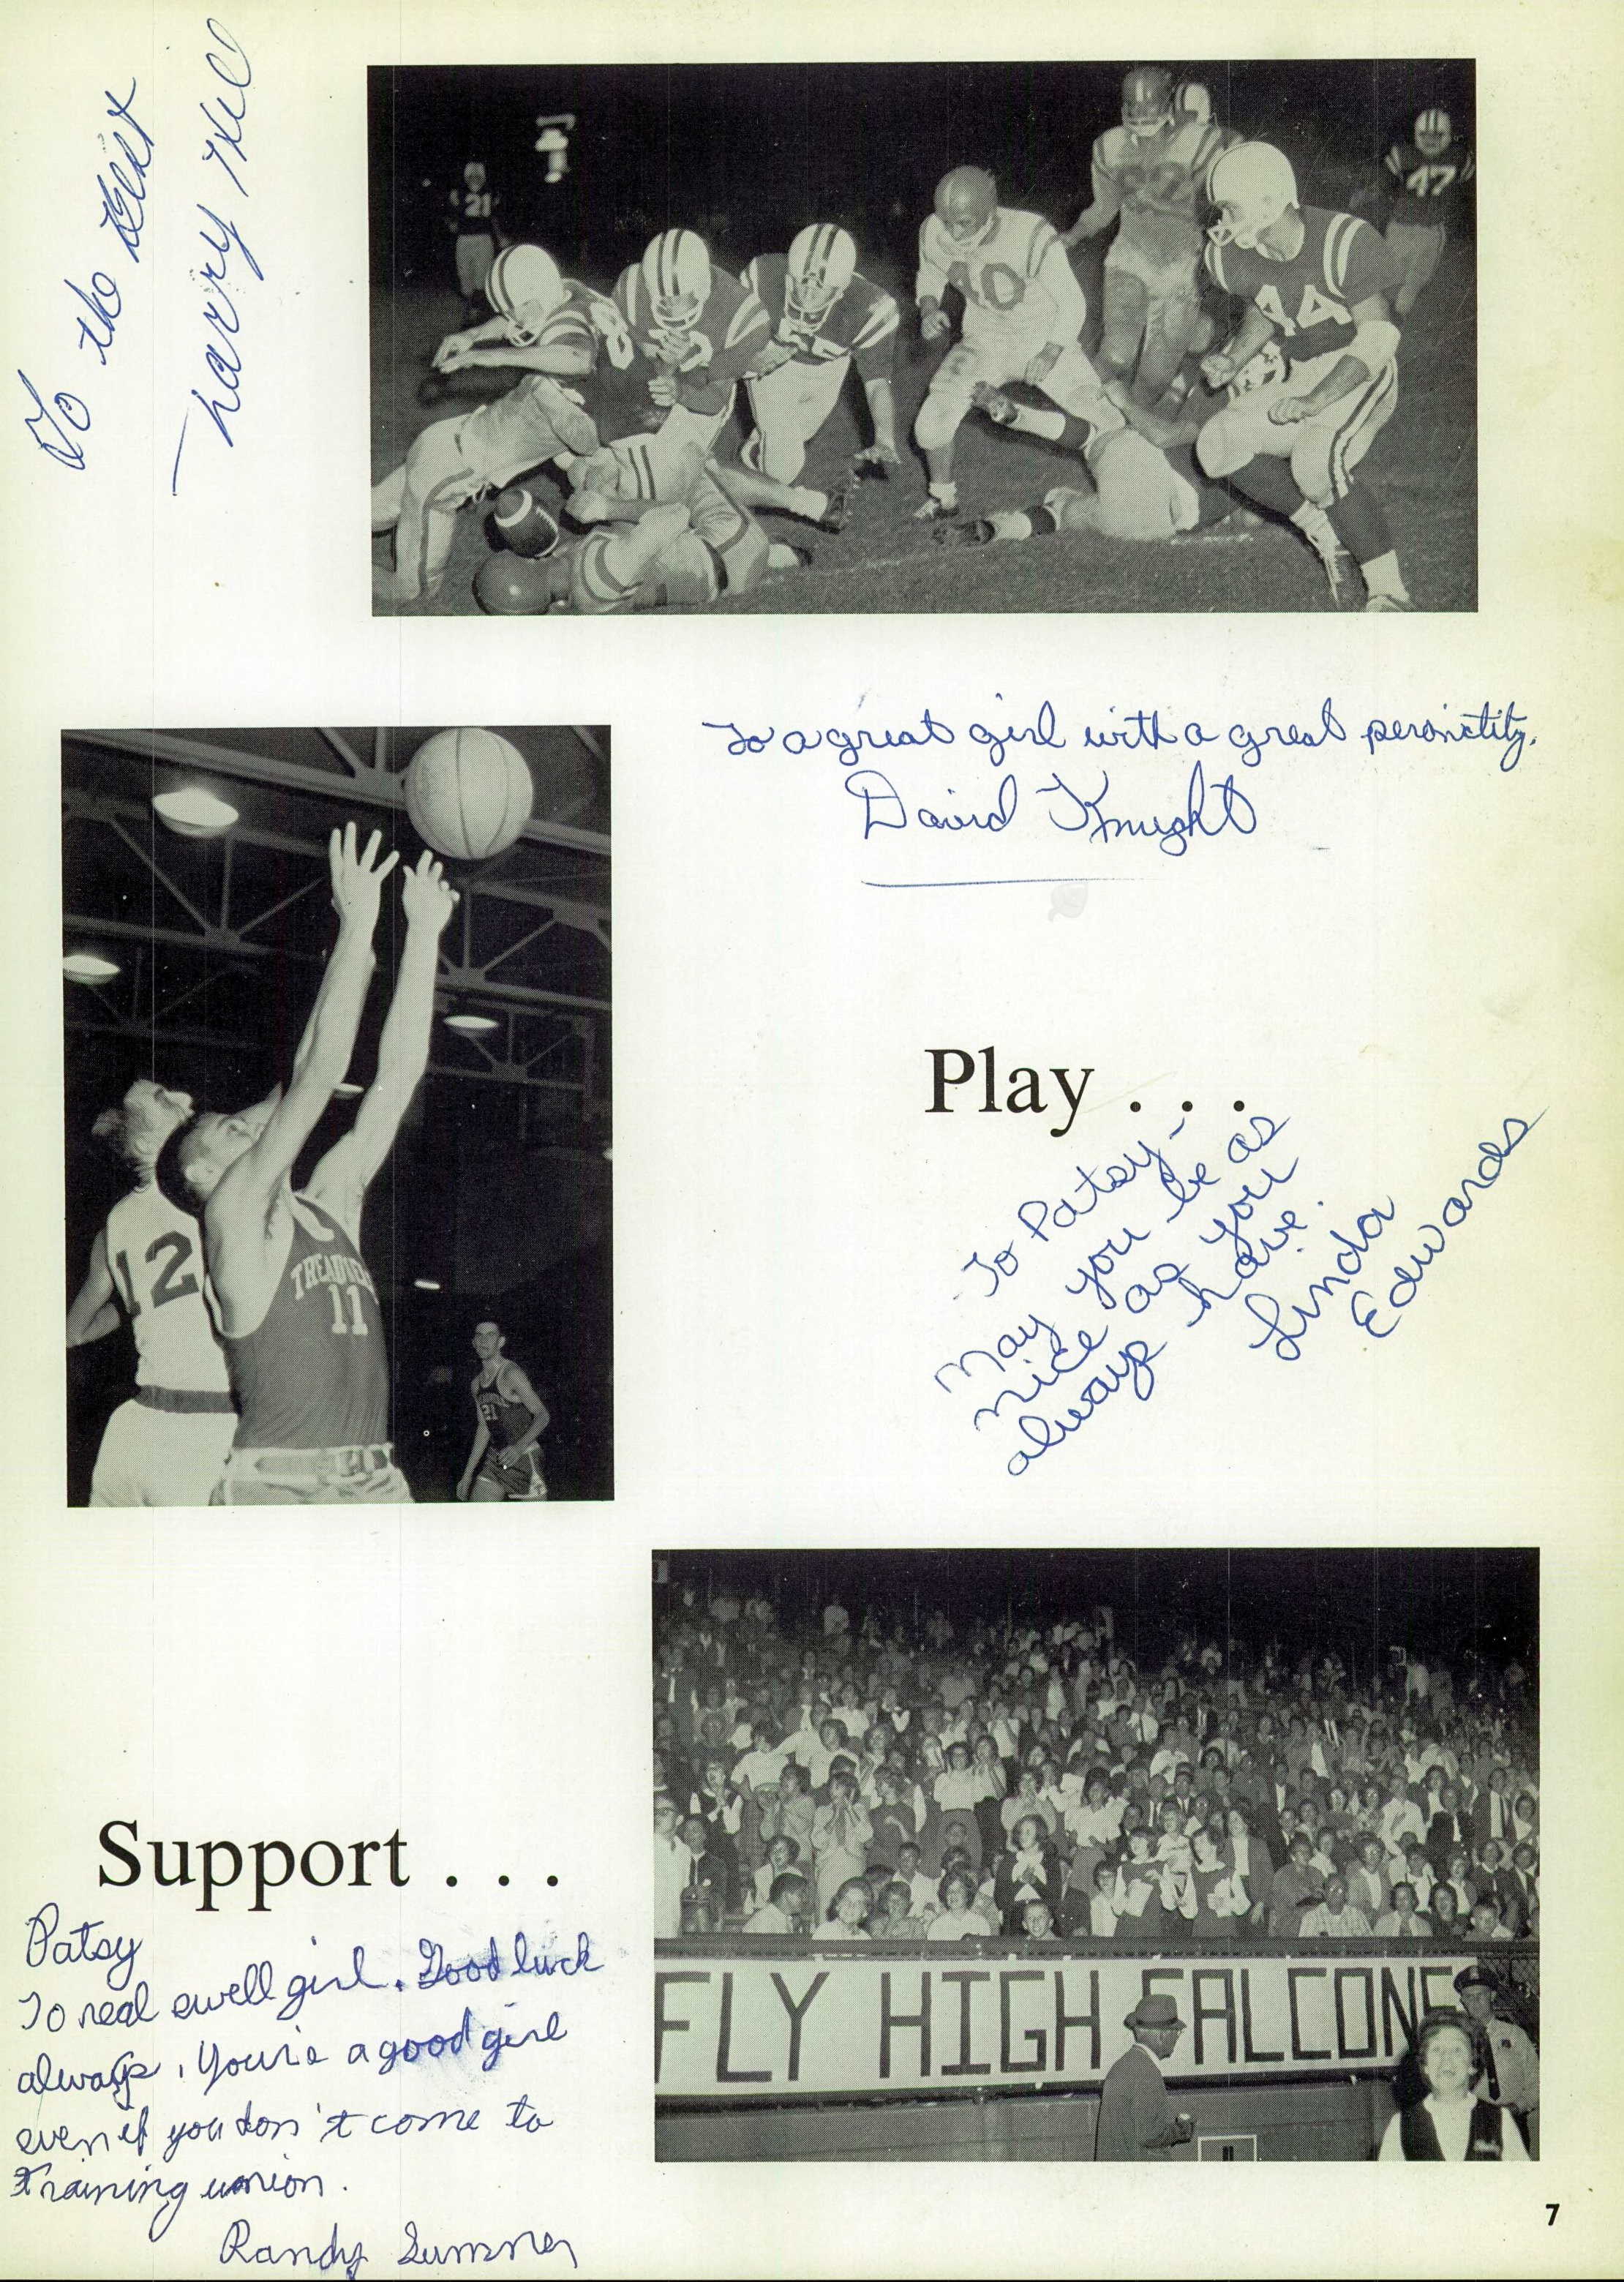 To the Best
Harry Hill
21
47
10
44
To a great girl with a great persnictity.
David Knight
Play . . .
To Patsy -
May you be as
nice as you
always have.
Linda
Edwards
12
11
21
Support . . .
Patsy
To real swell girl. Good luck
always, You're a good girl
even if you don't come to
Training union.
Randy Sumner
FLY HIGH FALCONS
7